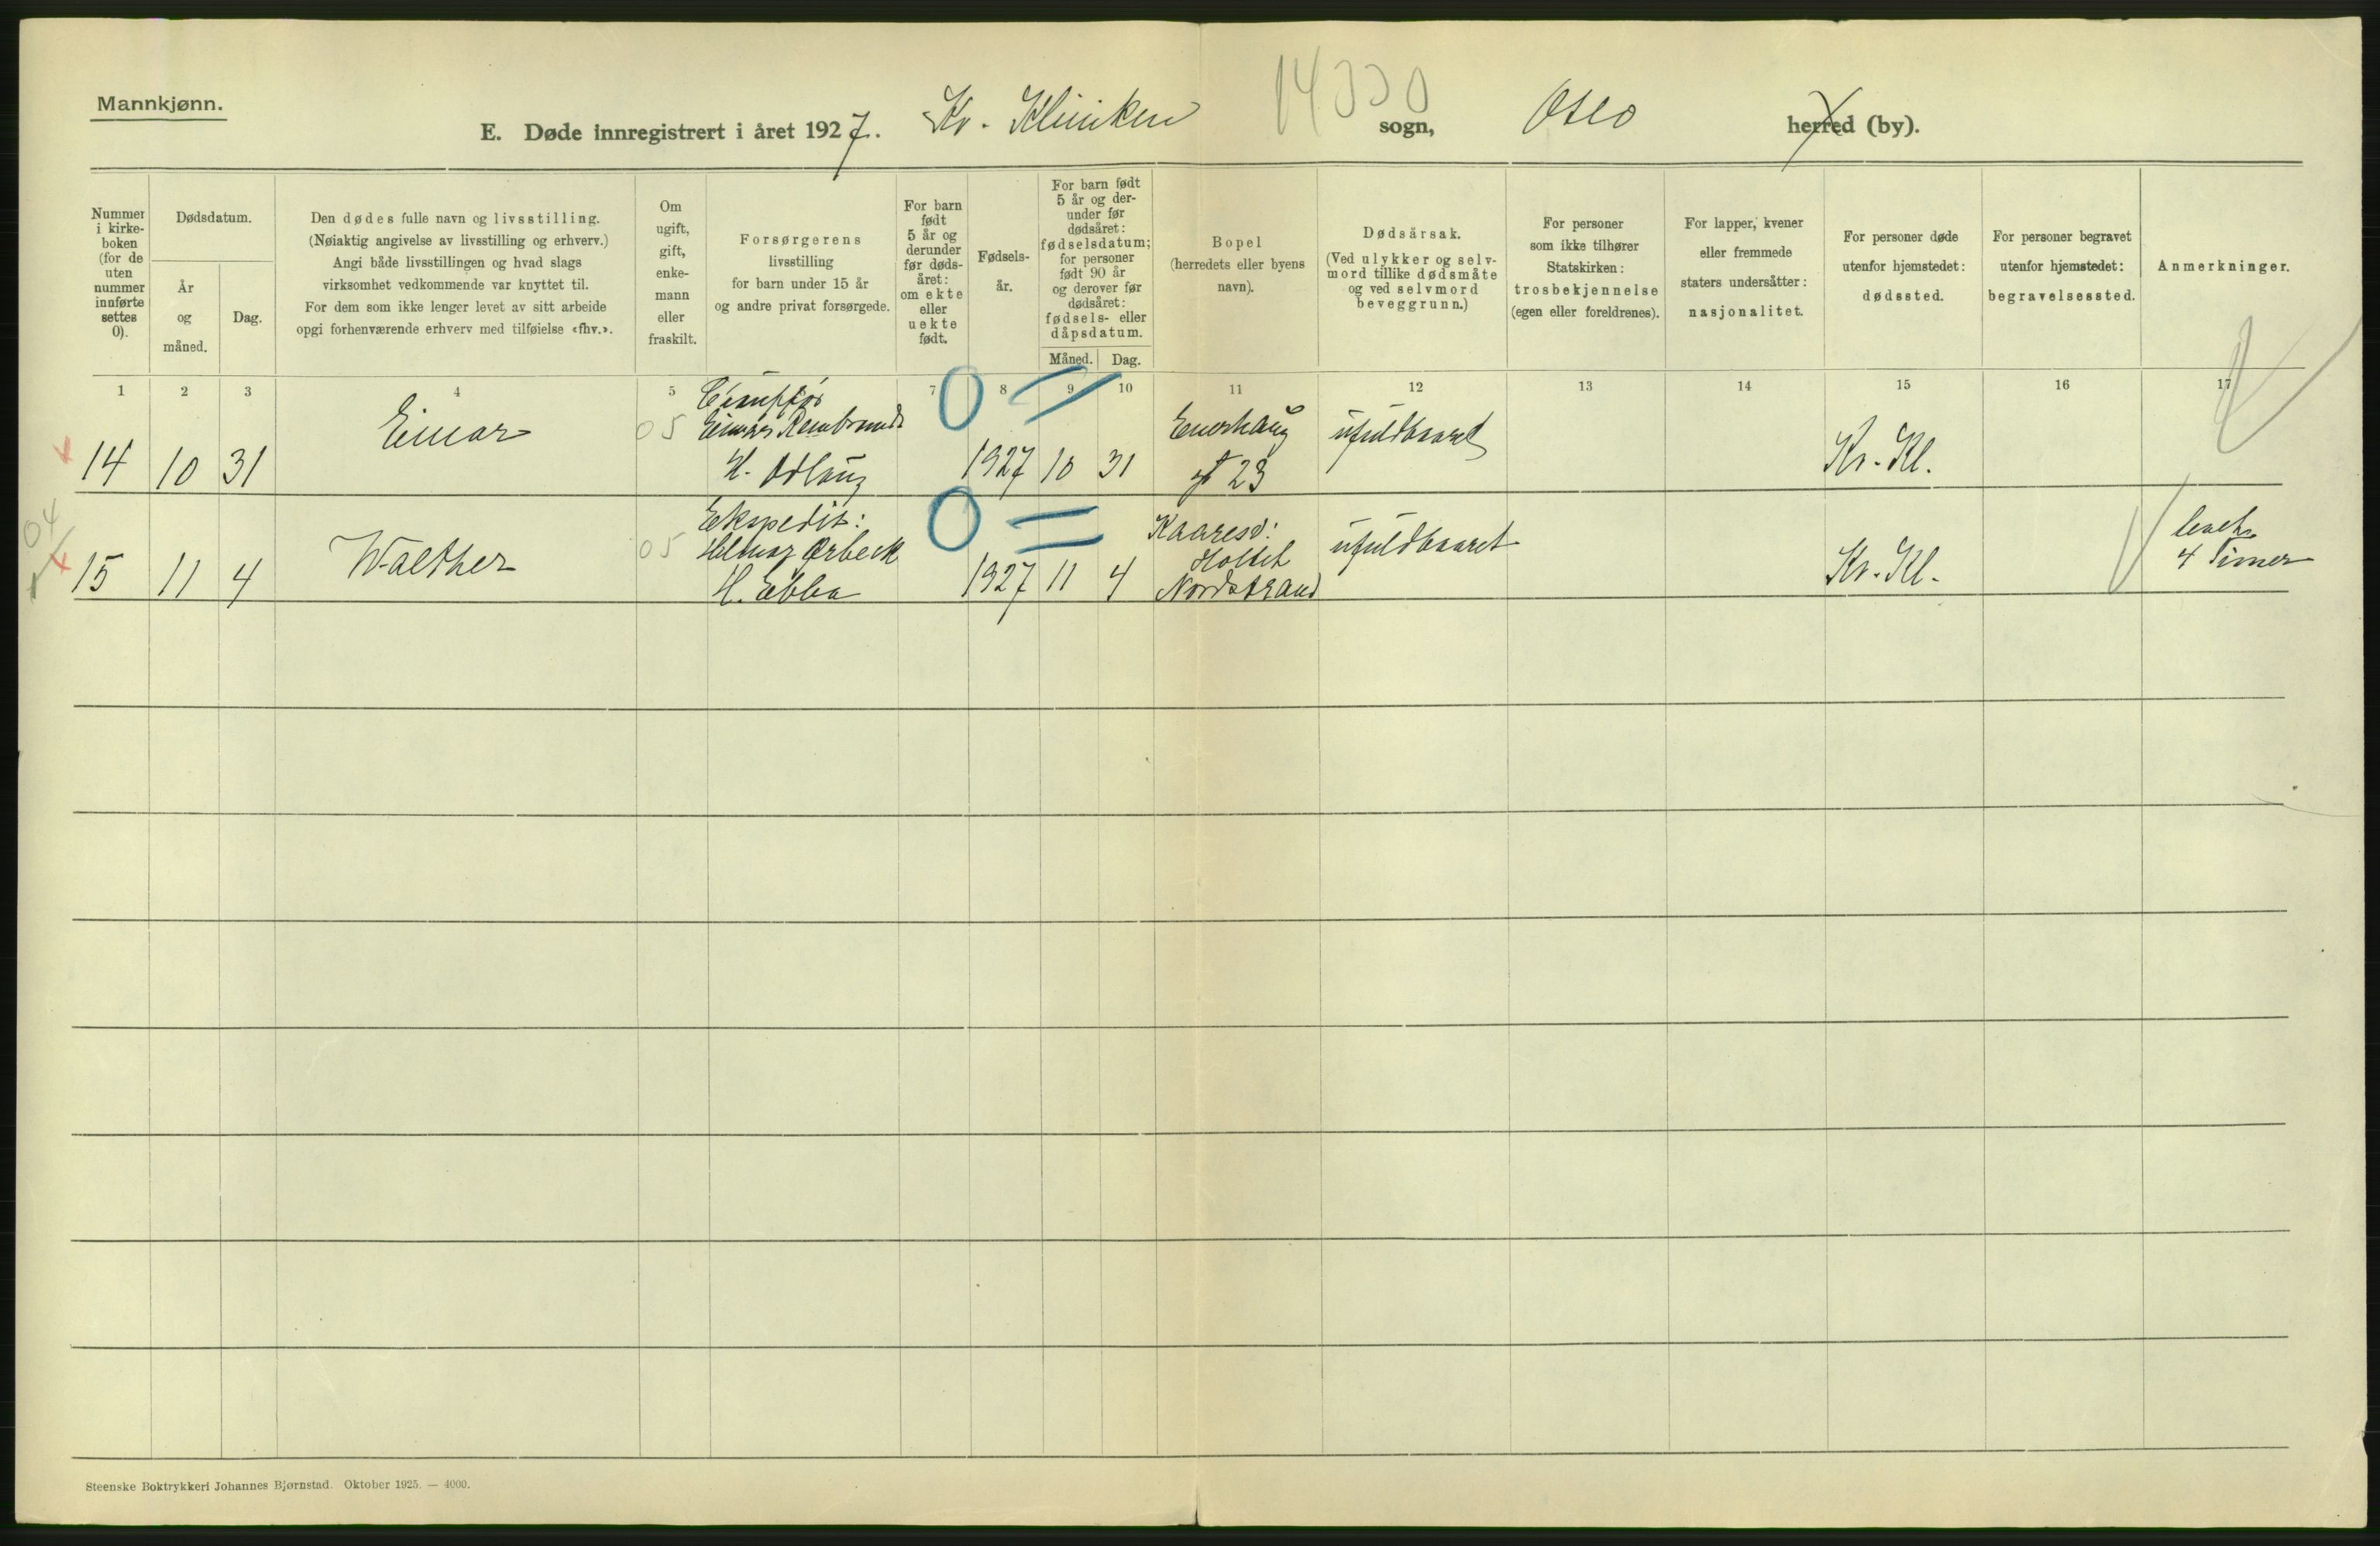 Mannkjønn.
E. Døde innregistrert i året 1927. Kv. Kliniken 14330 sogn, Oslo herred (by).
Nummer i kirke-boken (for de uten nummer innførte settes 0).
Dødsdatum.
År og måned.
Dag.
Den dødes fulle navn og livsstilling.
(Nøiaktig angivelse av livsstilling og erhverv.)
Angi både livsstillingen og hvad slags
virksomhet vedkommende var knyttet til.
For dem som ikke lenger levet av sitt arbeide
opgi forhenværende erhverv med tilføielse «fhv.».
Om ugift, gift, enke-mann eller fraskilt.
Forsørgerens
livsstilling
for barn under 15 år
og andre privat forsørgede.
For barn født 5 år og derunder før døds-året: om ekte eller uekte født.
Fødsels-år.
For barn født 5 år og der-under før dødsåret: fødselsdatum; for personer født 90 år og derover før dødsåret: fødsels- eller dåpsdatum.
Måned. Dag.
Bopel
(herredets eller byens
navn).
Dødsårsak.
(Ved ulykker og selv-
mord tillike dødsmåte
og ved selvmord
beveggrunn.)
For personer
som ikke tilhører
Statskirken:
trosbekjennelse
(egen eller foreldrenes).
For lapper, kvener
eller fremmede
staters undersåtter:
nasjonalitet.
For personer døde
utenfor hjemstedet:
dødssted.
For personer begravet
utenfor hjemstedet:
begravelsessted.
Anmerkninger.
1 2 3 4 5 7 8 9 10 11 12 13 14 15 16 17
14 10 31 Einar 05
Einar Rembrandt
H. Odlaug
0 1927 10 31
Enerhaug
gt 23
ufuldbaaret
Kv. Kl.
04
15 11 4 Walther 05
Ekspedit:
Helmar Ørbeck
H. Ebba
0 1927 11 4
Kaaresv:
Holtet
Nordstrand
ufuldbaaret
Kv. Kl.
levet
4 Timer
Steenske Boktrykkeri Johannes Bjørnstad. Oktober 1925. — 4000.